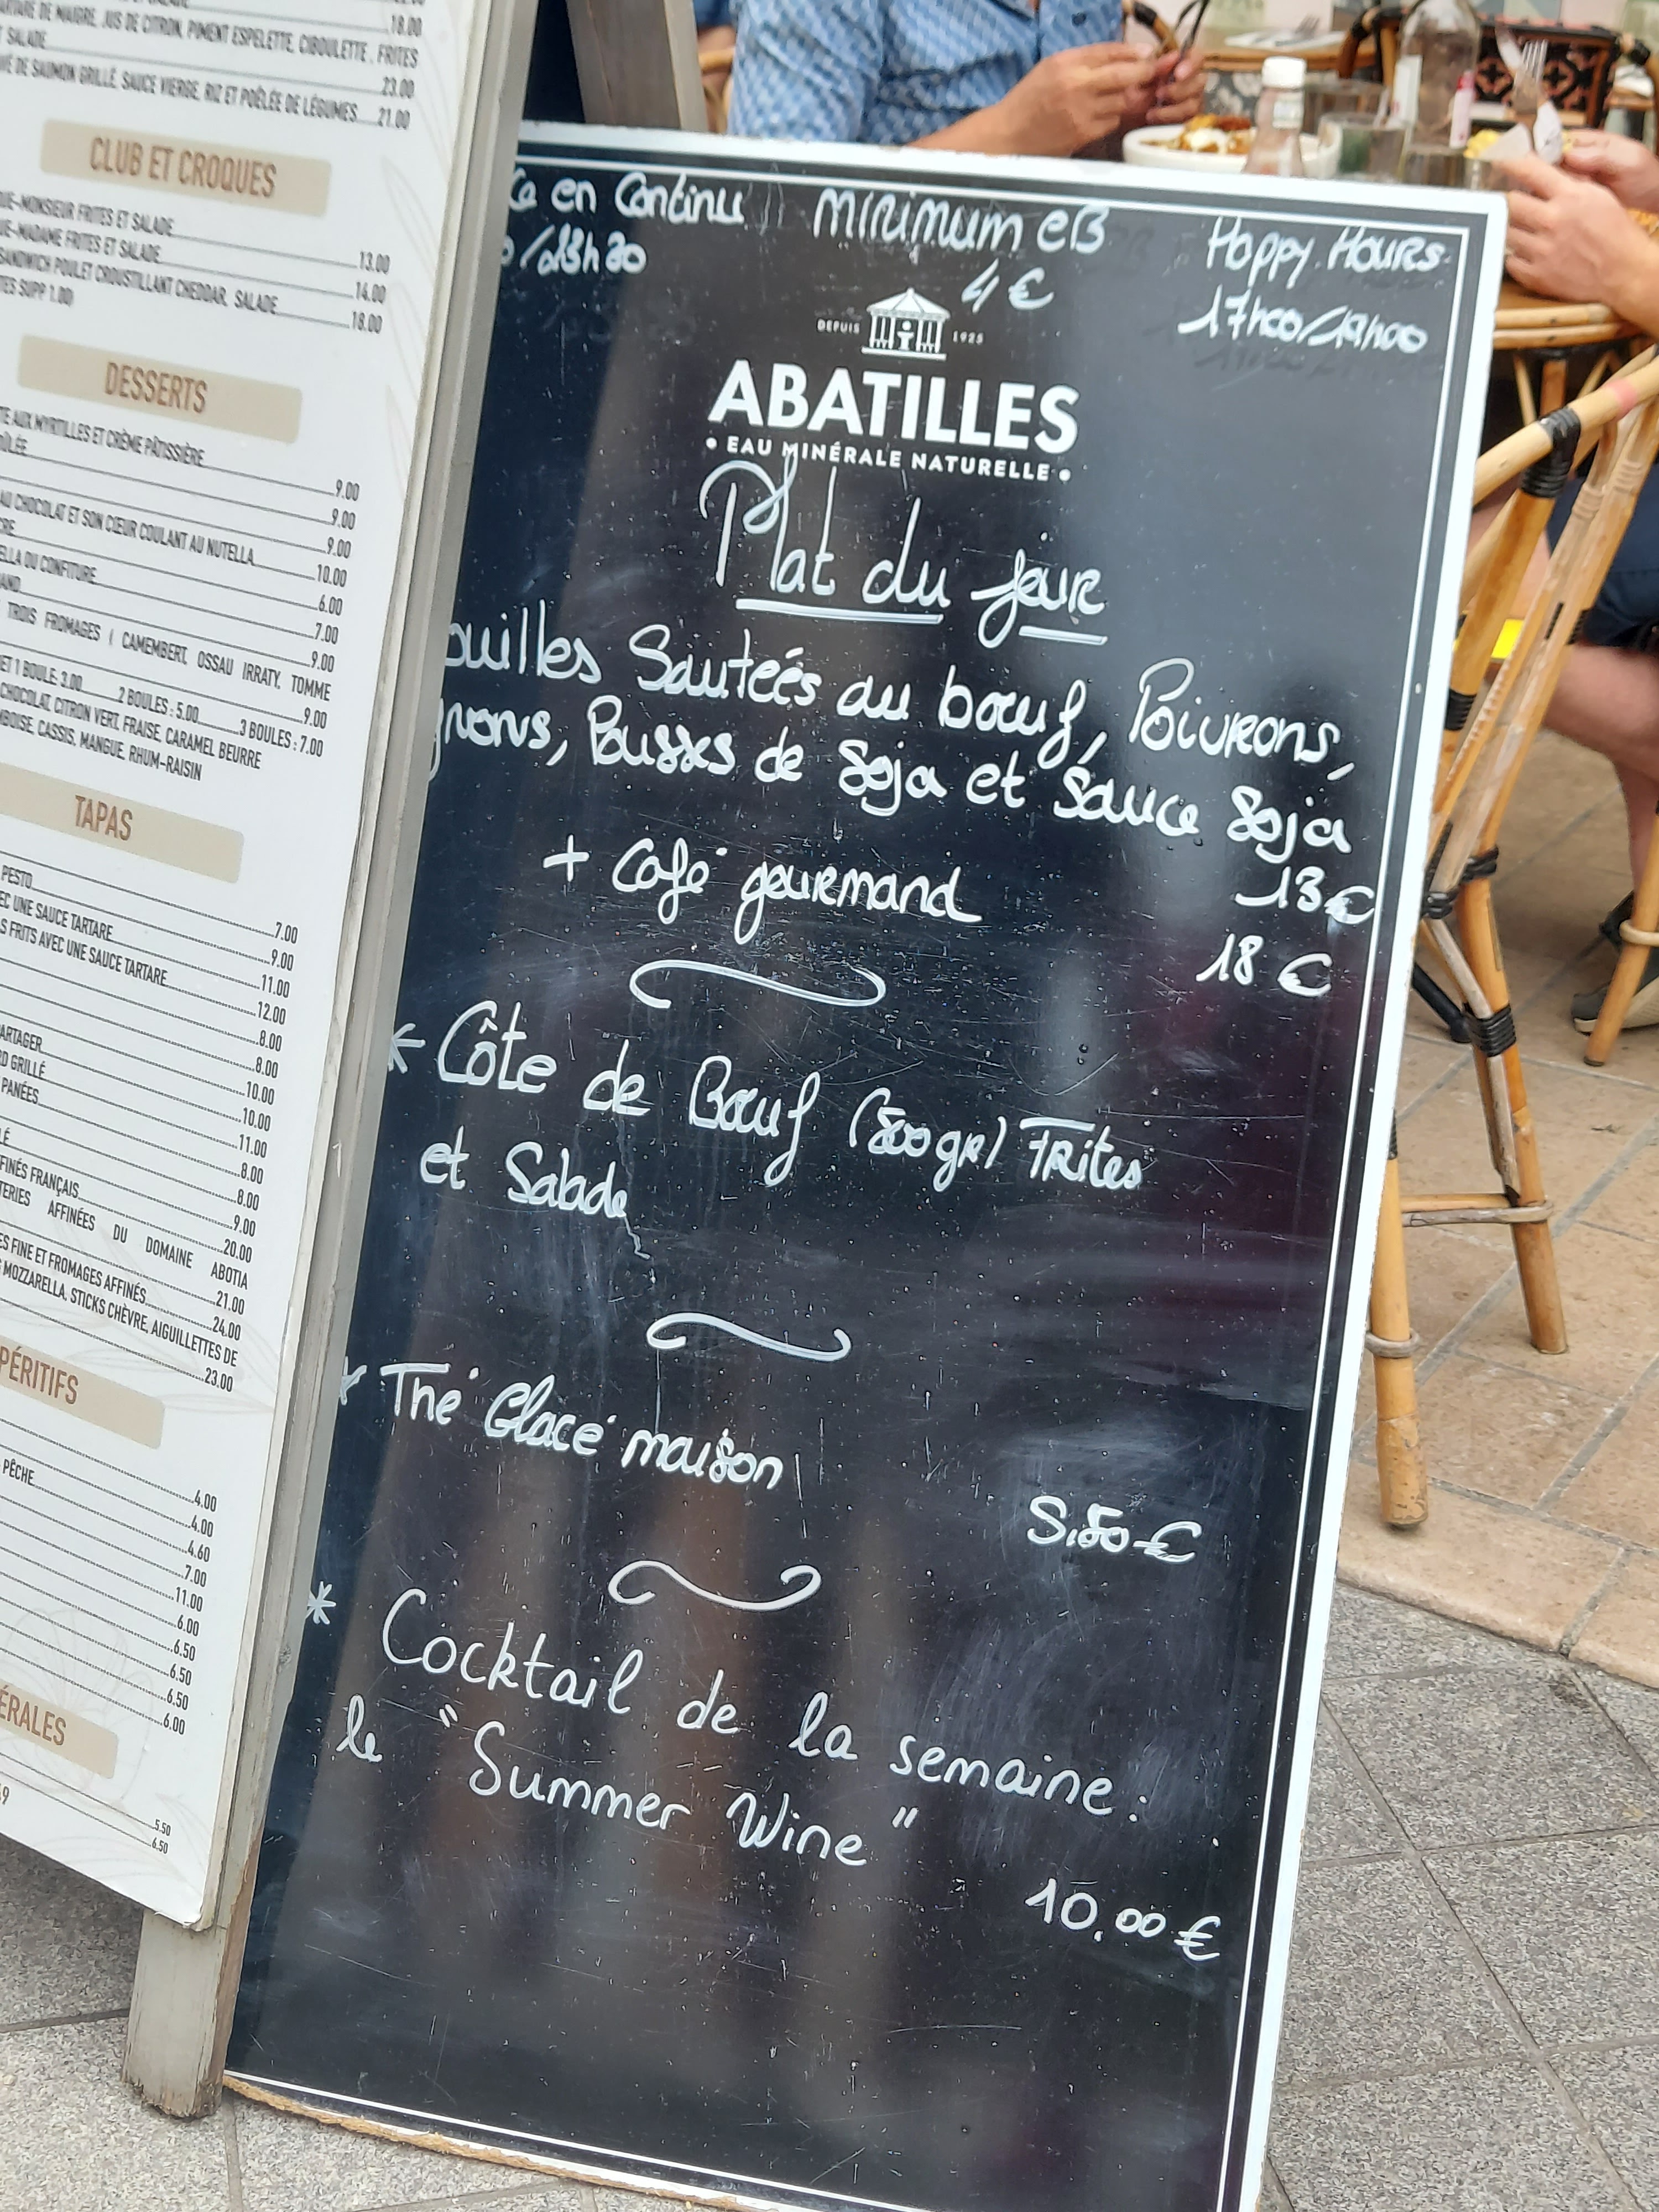 18.00
TARTARE DE MAIGRE, JUS DE CITRON, PIMENT ESPELETTE, CIBOULETTE . FRITES
SALADE 23.00
DE SAUMON GRILLÉ, SAUCE VIERGE, RIZ ET POÊLÉE DE LÉGUMES 21.00
CLUB ET CROQUES
UE-MONSIEUR FRITES ET SALADE 13.00
UE-MADAME FRITES ET SALADE 14.00
SANDWICH POULET CROUSTILLANT CHEDDAR, SALADE 18.00
TES SUPP 1.00)
DESSERTS
TE AUX MYRTILLES ET CRÈME PÂTISSIÈRE 9.00
ÛLÉE 9.00
9.00
AU CHOCOLAT ET SON CŒUR COULANT AU NUTELLA 10.00
CRE 6.00
ELLA OU CONFITURE 7.00
AND 9.00
TROIS FROMAGES ( CAMEMBERT, OSSAU IRRATY, TOMME
9.00
ET 1 BOULE: 3.00 2 BOULES : 5.00 3 BOULES : 7.00
CHOCOLAT, CITRON VERT, FRAISE, CARAMEL BEURRE
MBOISE, CASSIS, MANGUE, RHUM-RAISIN
TAPAS
7.00
PESTO 9.00
EC UNE SAUCE TARTARE 11.00
S FRITS AVEC UNE SAUCE TARTARE 12.00
8.00
8.00
10.00
ARTAGER 10.00
D GRILLÉ 11.00
PANÉES 8.00
8.00
LÉ 9.00
FINÉS FRANÇAIS 20.00
TERIES AFFINÉES DU DOMAINE ABOTIA
21.00
ES FINE ET FROMAGES AFFINÉS 24.00
MOZZARELLA, STICKS CHÈVRE, AIGUILLETTES DE
23.00
PÉRITIFS
4.00
PÊCHE 4.00
4.60
7.00
11.00
6.00
6.50
6.50
6.50
6.00
ÉRALES
5.50
6.50
en Continu
Minimum CB
4€
Happy Hours
17h00/19h00
DEPUIS 1925
ABATILLES
• EAU MINÉRALE NATURELLE •
Plat du jour
ouilles Sauteés au bœuf, Poivrons,
gnons, Pousses de Soja et Sauce Soja
13€
+ Café gourmand 18 €
* Côte de Bœuf (500gr) Frites
et Salade
* Thé Glacé maison
5.50 €
* Cocktail de la semaine :
le "Summer Wine"
10.00 €